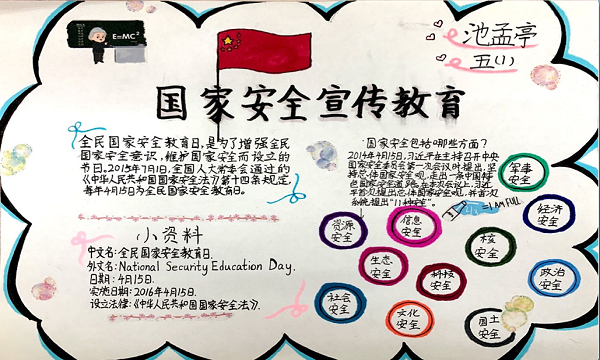 E=MC²
池孟亭
五(1)
国家安全宣传教育
全民国家安全教育日,是为了增强全民
国家安全意识,维护国家安全而设立的
节日。2015年7月1日,全国人大常委会通过的
《中华人民共和国国家安全法》第十四条规定,
每年4月15日为全民国家安全教育日。
国家安全包括哪些方面?
2014年4月15日,习近平在主持召开中央
国家安全委员会第一次会议时提出,坚
持总体国家安全观,走出一条中国特
色国家安全道路。在本次会议上,习近
平首次提出总体国家安全观,并首次
系统提出"11种安全"。
=I AM FULL
军事
安全
经济
安全
资源
安全
信息
安全
核
安全
生态
安全
科技
安全
政治
安全
社会
安全
文化
安全
国土
安全
小资料
中文名:全民国家安全教育日.
外文名:National Security Education Day.
日期:4月15日.
实施日期:2016年4月15日.
设立法律:《中华人民共和国国家安全法》.